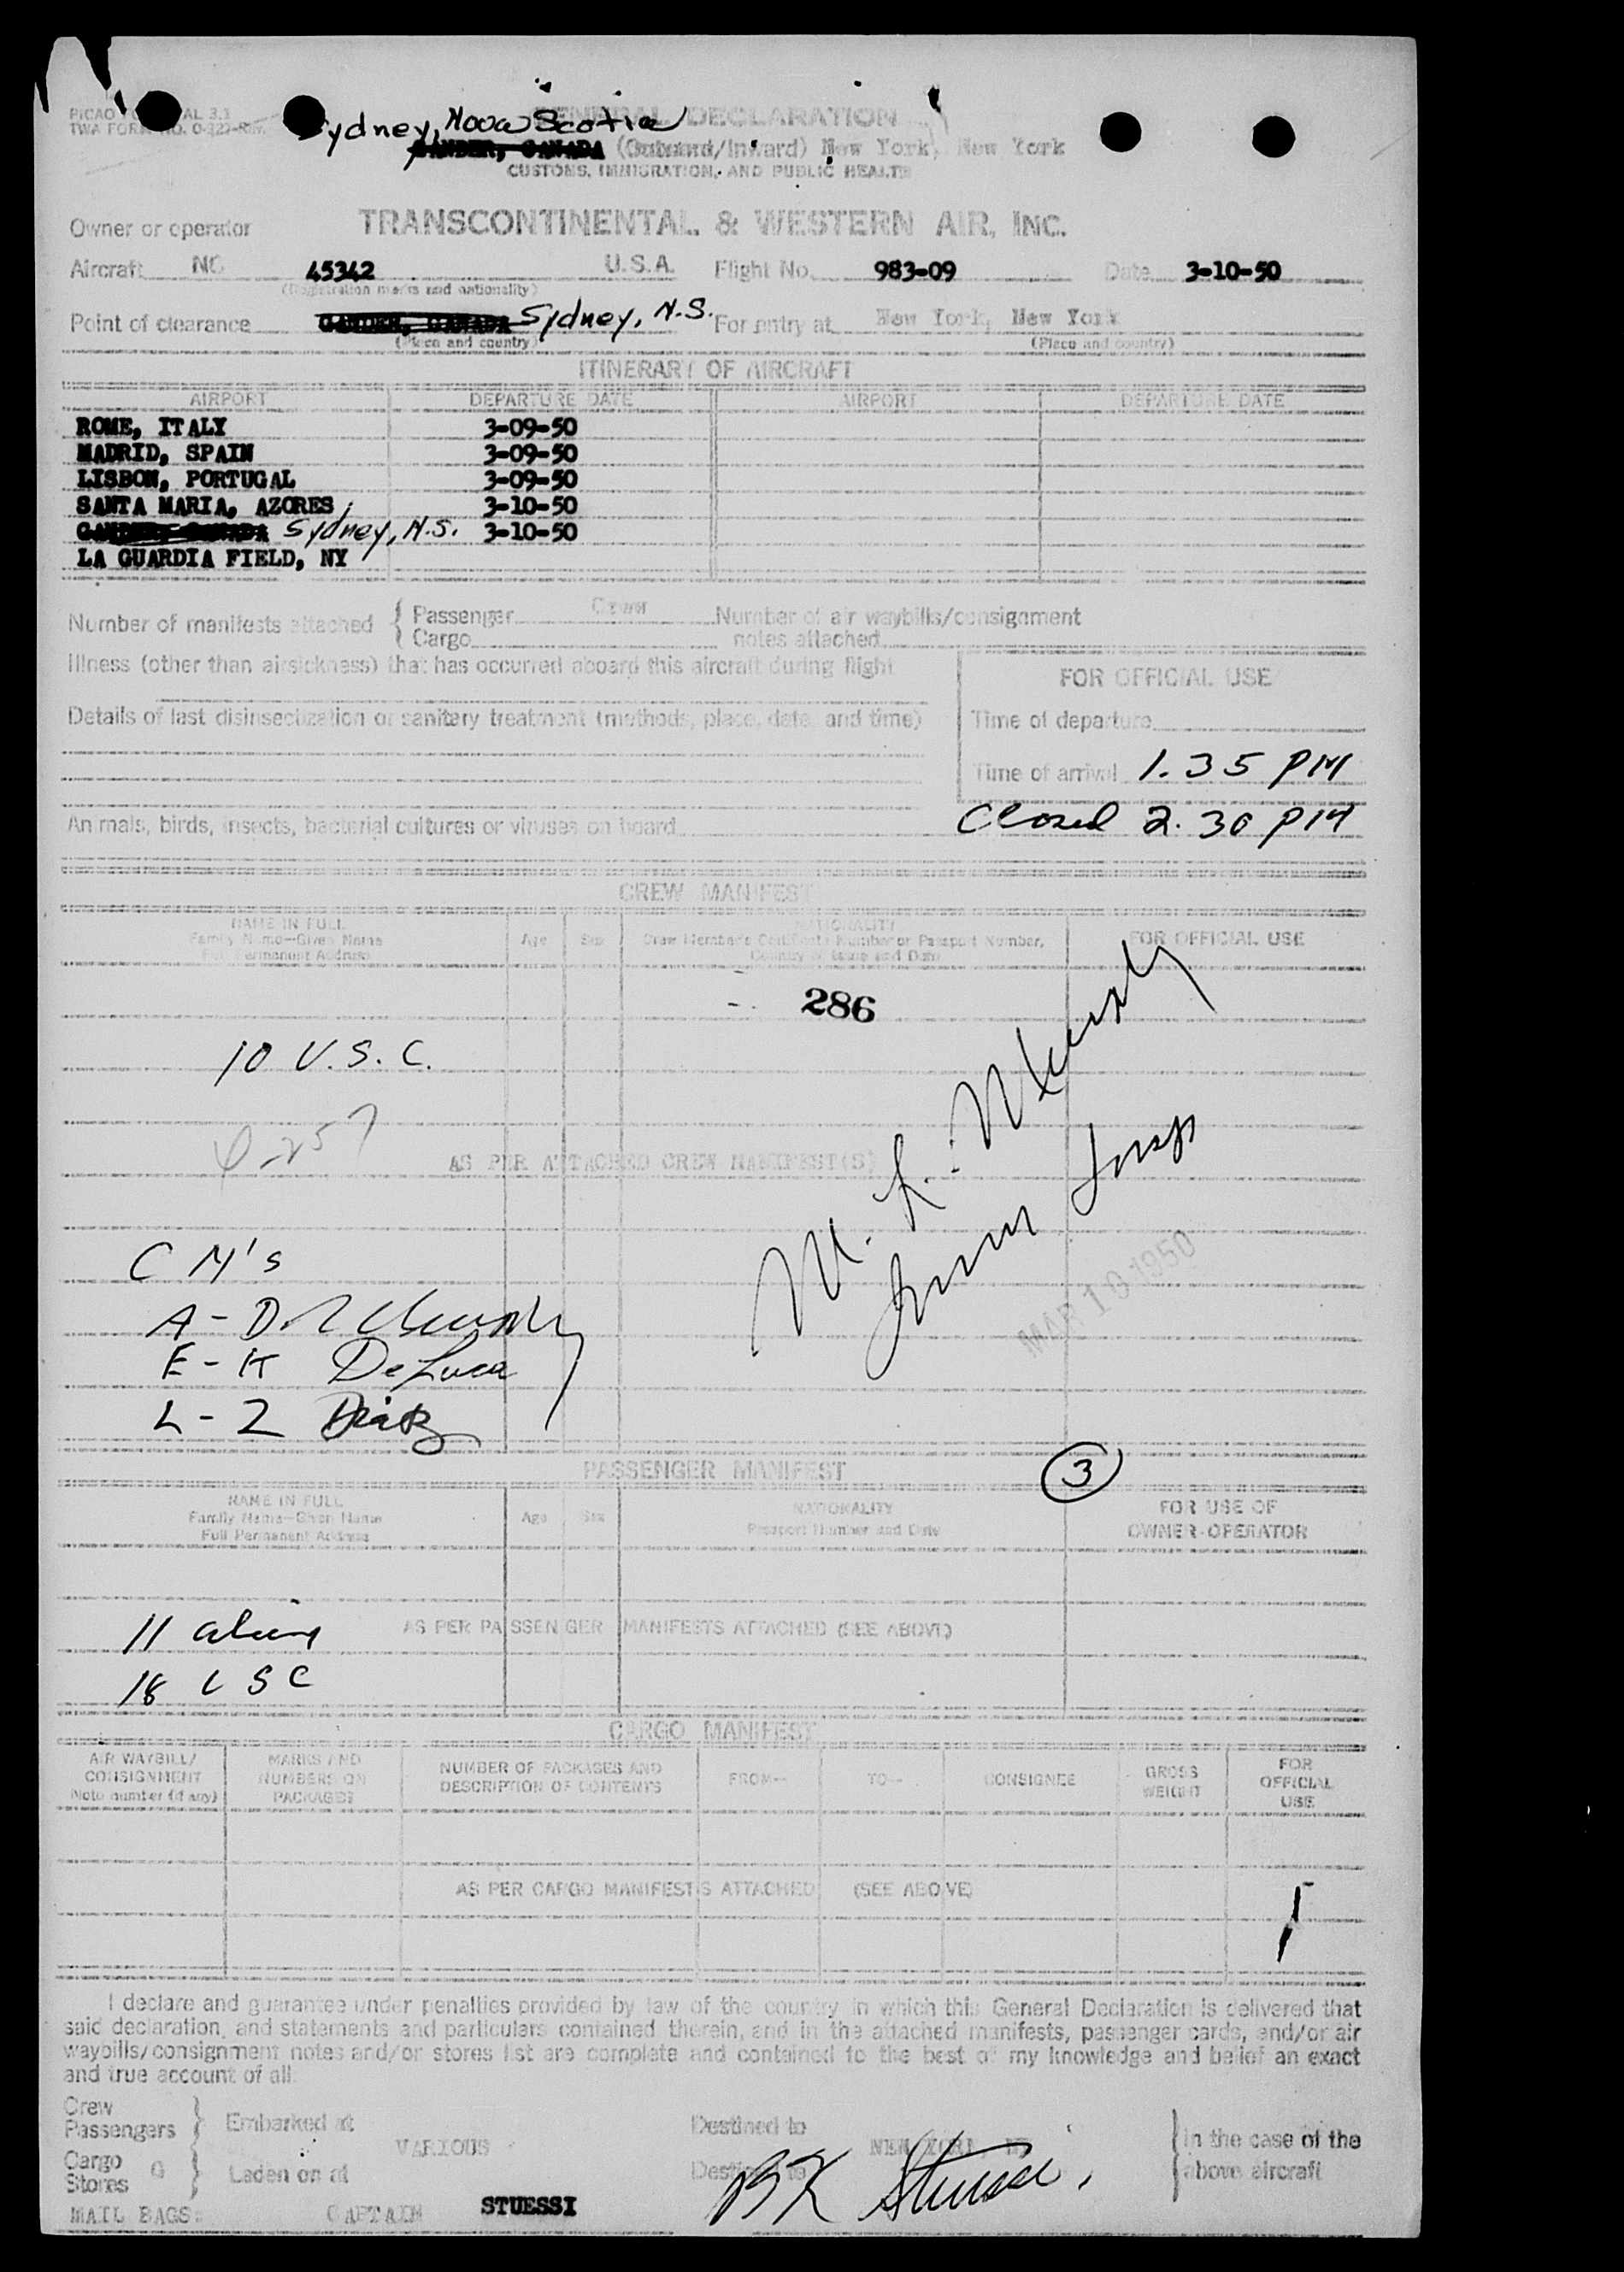 PICAO
TWA FORM NO. 0-327-Rev.
GENERAL DECLARATION
Sydney, Nova Scotia
GANDER, CANADA (Outward/Inward) New York, New York
CUSTOMS, IMMIGRATION, AND PUBLIC HEALTH
Owner or operator TRANSCONTINENTAL & WESTERN AIR, INC.
Aircraft NC 45342 U.S.A. Flight No. 983-09 Date 3-10-50
(Registration marks and nationality)
Point of clearance GANDER, CANADA Sydney, N.S. For entry at New York, New York
(Place and country) (Place and country)
ITINERARY OF AIRCRAFT
AIRPORT DEPARTURE DATE AIRPORT DEPARTURE DATE
ROME, ITALY 3-09-50
MADRID, SPAIN 3-09-50
LISBON, PORTUGAL 3-09-50
SANTA MARIA, AZORES 3-10-50
GANDER, CANADA Sydney, N.S. 3-10-50
LA GUARDIA FIELD, NY
Number of manifests attached { Passenger Crew Number of air waybills/consignment
Cargo notes attached
Illness (other than airsickness) that has occurred aboard this aircraft during flight
FOR OFFICIAL USE
Details of last disinsectization or sanitary treatment (methods, place, date, and time)
Time of departure
Time of arrival 1.35 PM
Closed 2.30 PM
Animals, birds, insects, bacterial cultures or viruses on board
CREW MANIFEST
NAME IN FULL
Family Name—Given Name
Full Permanent Address
Age Sex
NATIONALITY
Crew Member's Certificate Number or Passport Number,
Country of Issue and Date
FOR OFFICIAL USE
286
10 U.S.C.
AS PER ATTACHED CREW MANIFEST(S)
MAR 10 1950
C M's
A - D
E - K DeLuca
L - Z Diaz
PASSENGER MANIFEST
3
NAME IN FULL
Family Name—Given Name
Full Permanent Address
Age Sex
NATIONALITY
Passport Number and Date
FOR USE OF
OWNER-OPERATOR
11 aliens AS PER PASSENGER MANIFESTS ATTACHED (SEE ABOVE)
18 USC
CARGO MANIFEST
AIR WAYBILL/
CONSIGNMENT
Note number (if any)
MARKS AND
NUMBERS ON
PACKAGES
NUMBER OF PACKAGES AND
DESCRIPTION OF CONTENTS
FROM— TO— CONSIGNEE
GROSS
WEIGHT
FOR
OFFICIAL
USE
AS PER CARGO MANIFESTS ATTACHED (SEE ABOVE)
I declare and guarantee under penalties provided by law of the country in which this General Declaration is delivered that
said declaration, and statements and particulars contained therein, and in the attached manifests, passenger cards, and/or air
waybills/consignment notes and/or stores list are complete and contained to the best of my knowledge and belief an exact
and true account of all
Crew
Passengers } Embarked at VARIOUS Destined to NEW YORK, NY
Cargo
Stores } Laden on at Destined to
In the case of the
above aircraft
BK Stuessi
MAIL BAGS: CAPTAIN STUESSI